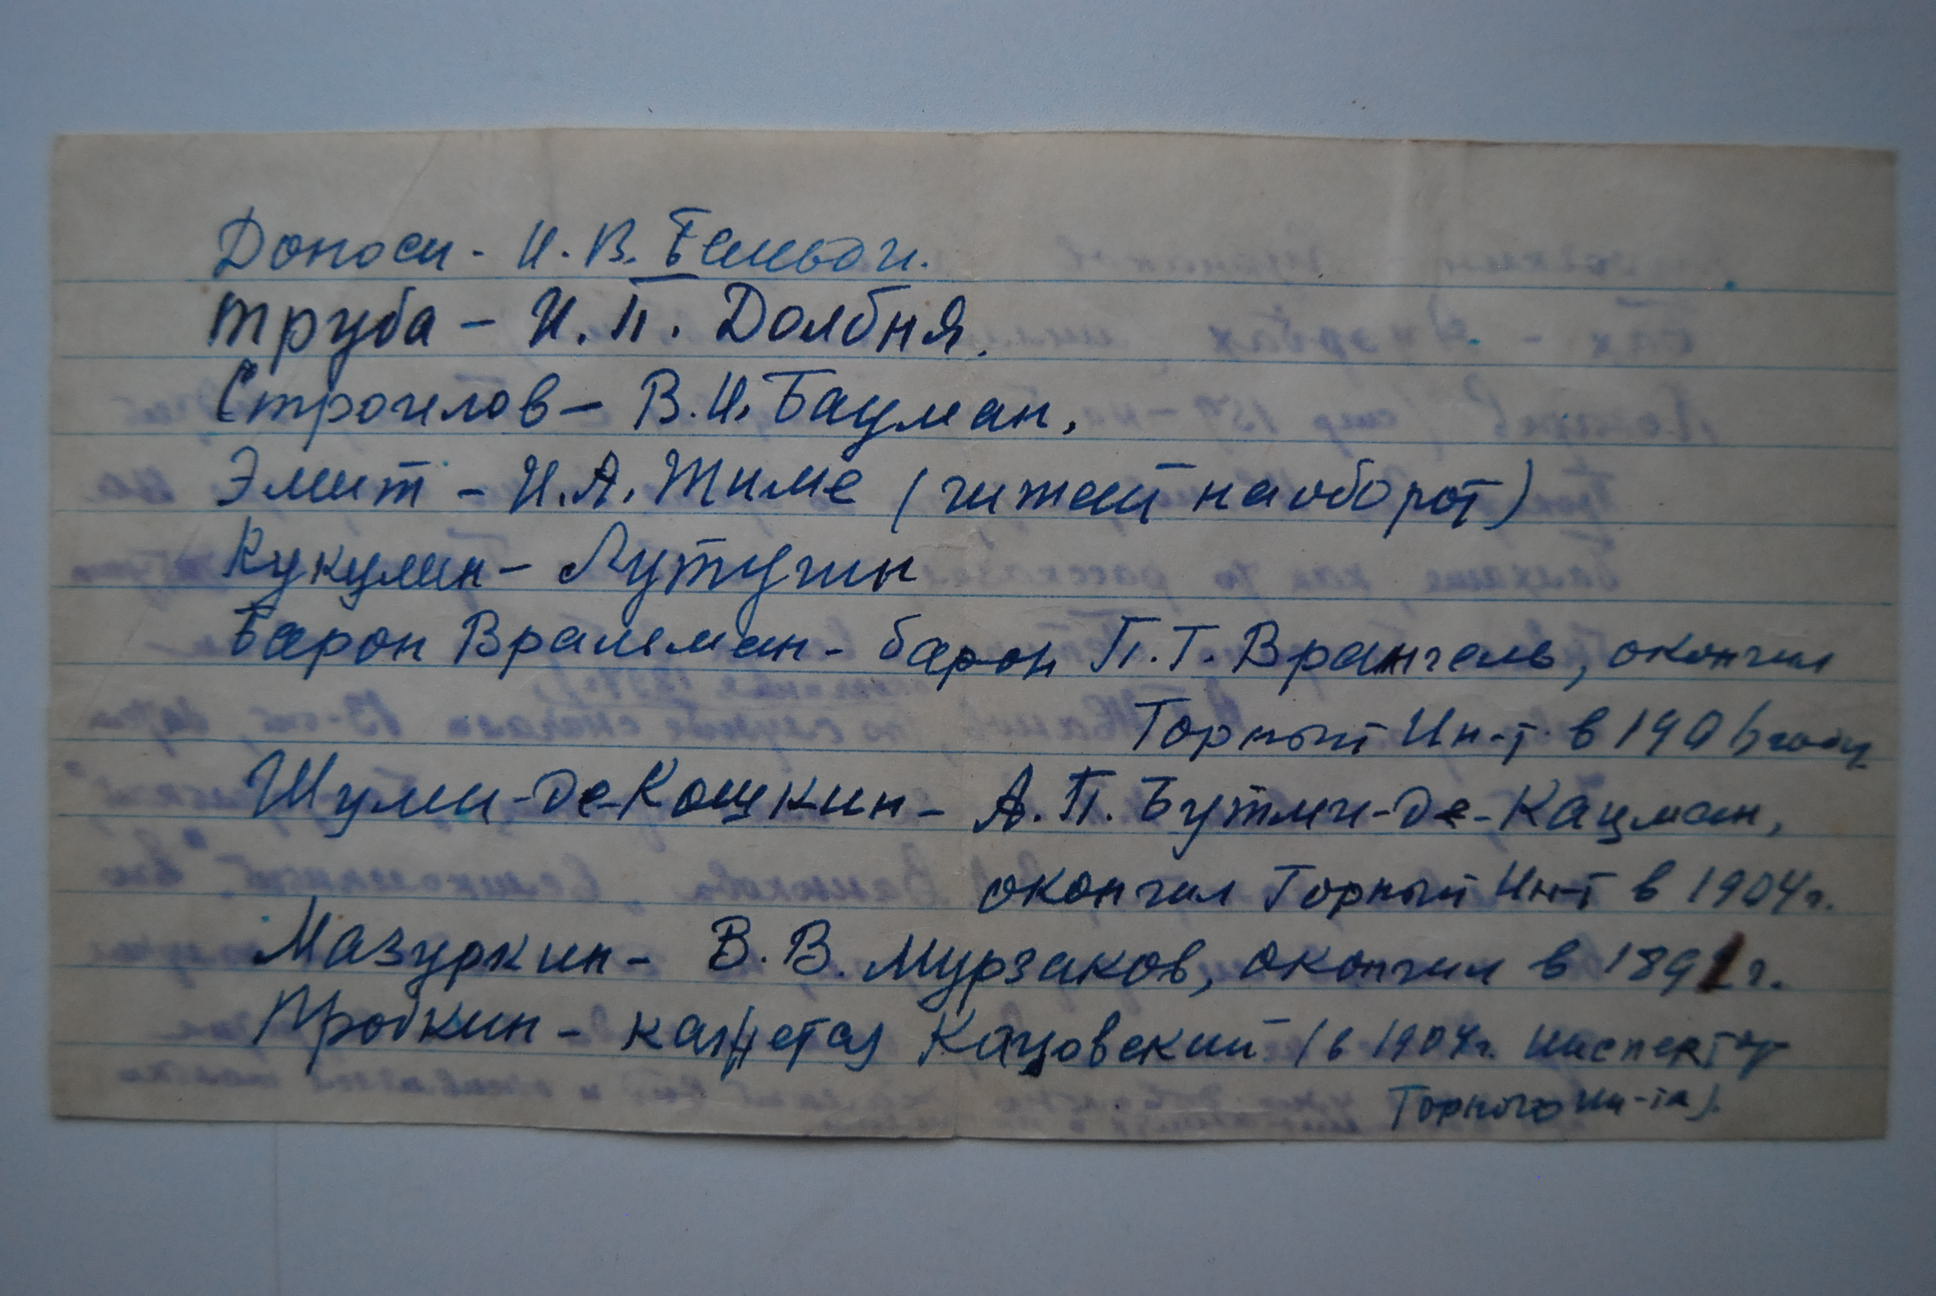 Доноси - И. В. 
Труба - И. П. Долбня.
Строгилов - В. И. Бауман,
Эмит - И. А. Тиме (читай наоборот)
Кукулин - Лутугин
Барон Вральман - барон П. Г. Врангель, окончил
Горный Ин-т. в 1901 году
Шулми-де-Кошкин - А. П. Бутми-де-Кацман,
окончил Горный Ин-т в 1904 г.
Мазуркин - В. В. Мурзаков, окончил в 1891 г.
Пробкин - Кацовский (в 1904 г. инспектор
Горного ин-та).